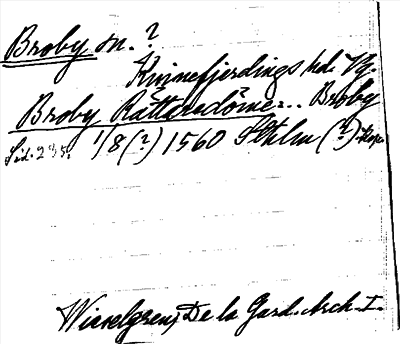 Broby sn. ?
Kinnefjerdings hd. Vg.
Broby Rättaredömer.. Broby
Sid. 235. 1/8 (?) 1560 Sthlm (?) Kop.
Wieselgren, De la Gard. Arch. I.